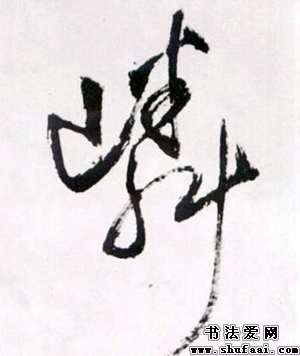 嶙
书法爱网
www.shufaai.com